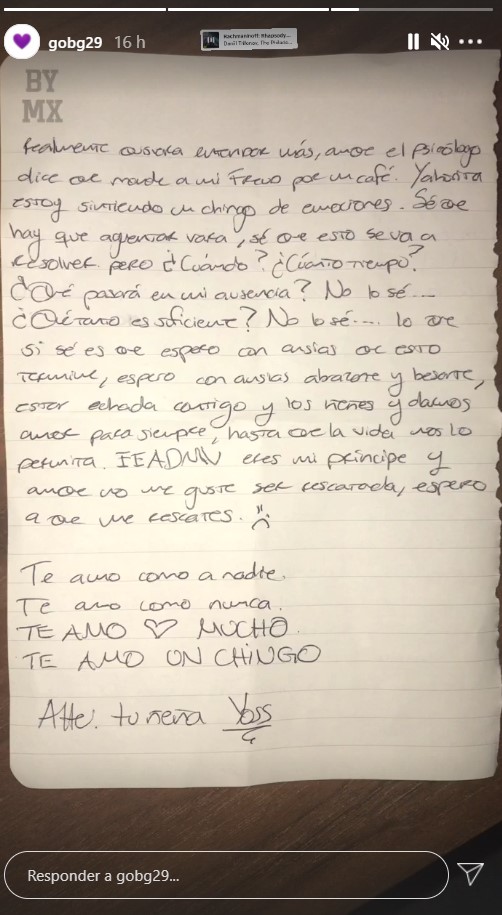 gobg29 16 h
Rachmaninoff: Rhapsody...
Daniil Trifonov, The Philade...
BY
MX
Realmente quisiera entender más, aunque el psicólogo
dice que mande a mi Freud por un café. Yahorita
estoy sintiendo un chingo de emociones. Sé que
hay que aguantar vara, sé que esto se va a
resolver pero ¿Cuándo? ¿Cuánto tiempo?
¿Qué pasará en mi ausencia? No lo sé...
¿Qué tanto es suficiente? No lo sé.... lo que
si sé es que espero con ansias que esto
termine, espero con ansias abrazarte y besarte,
estar echada contigo y los nenes y darnos
amor para siempre, hasta que la vida nos lo
permita. eres mi príncipe y
aunque no me guste ser rescatada, espero
a que me rescates.
Te amo como a nadie.
Te amo como nunca.
TE AMO ♡ MUCHO.
TE AMO UN CHINGO
Atte. tu nena Yoss
Responder a gobg29...